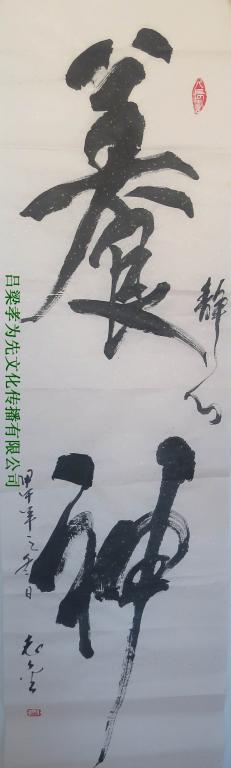 養神
静心
甲午年之冬日
吕梁孝为先文化传播有限公司